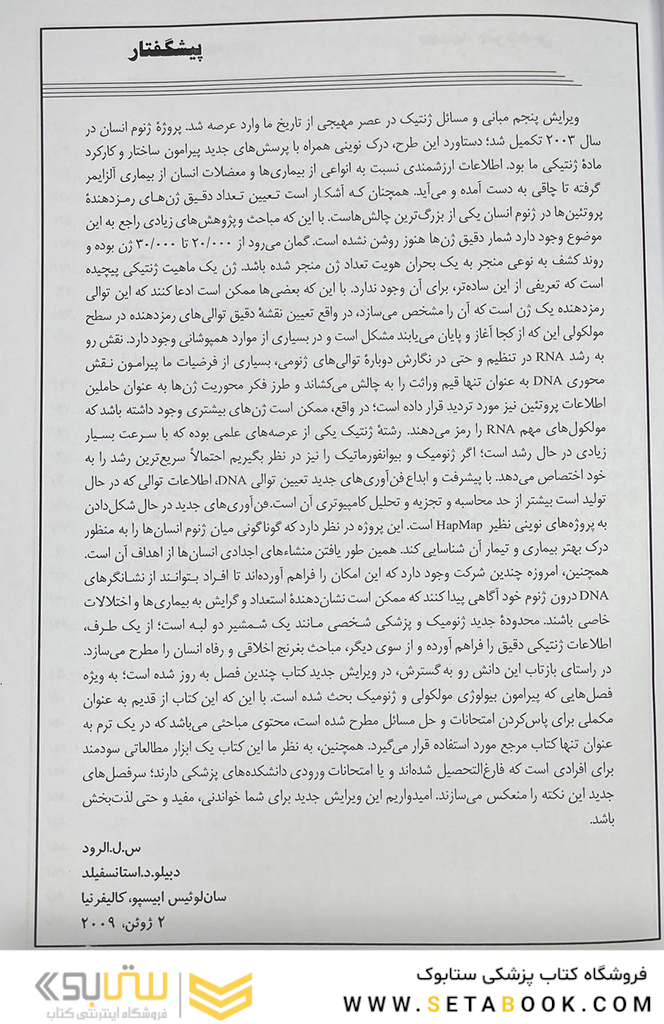 پیشگفتار
ویرایش پنجم مبانی و مسائل ژنتیک در عصر مهیجی از تاریخ ما وارد عرصه شد. پروژهٔ ژنوم انسان در
سال ۲۰۰۳ تکمیل شد؛ دستاورد این طرح، درک نوینی همراه با پرسش‌های جدید پیرامون ساختار و کارکرد
مادهٔ ژنتیکی ما بود. اطلاعات ارزشمندی نسبت به انواعی از بیماری‌ها و معضلات انسان از بیماری آلزایمر
گرفته تا چاقی به دست آمده و می‌آید. همچنان که آشکار است تعیین تعداد دقیق ژن‌های رمزدهندهٔ
پروتئین‌ها در ژنوم انسان یکی از بزرگ‌ترین چالش‌هاست. با این که مباحث و پژوهش‌های زیادی راجع به این
موضوع وجود دارد شمار دقیق ژن‌ها هنوز روشن نشده است. گمان می‌رود از ۲۰/۰۰۰ تا ۳۰/۰۰۰ ژن بوده و
روند کشف به نوعی منجر به یک بحران هویت تعداد ژن منجر شده باشد. ژن یک ماهیت ژنتیکی پیچیده
است که تعریفی از این ساده‌تر، برای آن وجود ندارد. با این که بعضی‌ها ممکن است ادعا کنند که این توالی
رمزدهنده یک ژن است که آن را مشخص می‌سازد، در واقع تعیین نقشهٔ دقیق توالی‌های رمزدهنده در سطح
مولکولی این که از کجا آغاز و پایان می‌یابند مشکل است و در بسیاری از موارد همپوشانی وجود دارد. نقش رو
به رشد RNA در تنظیم و حتی در نگارش دوبارهٔ توالی‌های ژنومی، بسیاری از فرضیات ما پیرامون نقش
محوری DNA به عنوان تنها قیم وراثت را به چالش می‌کشاند و طرز فکر محوریت ژن‌ها به عنوان حاملین
اطلاعات پروتئین نیز مورد تردید قرار داده است؛ در واقع، ممکن است ژن‌های بیشتری وجود داشته باشد که
مولکول‌های مهم RNA را رمز می‌دهند. رشتهٔ ژنتیک یکی از عرصه‌های علمی بوده که با سرعت بسیار
زیادی در حال رشد است؛ اگر ژنومیک و بیوانفورماتیک را نیز در نظر بگیریم احتمالاً سریع‌ترین رشد را به
خود اختصاص می‌دهد. با پیشرفت و ابداع فن‌آوری‌های جدید تعیین توالی DNA، اطلاعات توالی که در حال
تولید است بیشتر از حد محاسبه و تجزیه و تحلیل کامپیوتری آن است. فن‌آوری‌های جدید در حال شکل‌دادن
به پروژه‌های نوینی نظیر HapMap است. این پروژه در نظر دارد که گوناگونی میان ژنوم انسان‌ها را به منظور
درک بهتر بیماری و تیمار آن شناسایی کند. همین طور یافتن منشاءهای اجدادی انسان‌ها از اهداف آن است.
همچنین، امروزه چندین شرکت وجود دارد که این امکان را فراهم آورده‌اند تا افراد بتوانند از نشانگرهای
DNA درون ژنوم خود آگاهی پیدا کنند که ممکن است نشان‌دهندهٔ استعداد و گرایش به بیماری‌ها و اختلالات
خاصی باشند. محدودهٔ جدید ژنومیک و پزشکی شخصی مانند یک شمشیر دو لبه است؛ از یک طرف،
اطلاعات ژنتیکی دقیق را فراهم آورده و از سوی دیگر، مباحث بغرنج اخلاقی و رفاه انسان را مطرح می‌سازد.
در راستای بازتاب این دانش رو به گسترش، در ویرایش جدید کتاب چندین فصل به روز شده است؛ به ویژه
فصل‌هایی که پیرامون بیولوژی مولکولی و ژنومیک بحث شده است. با این که این کتاب از قدیم به عنوان
مکملی برای پاس‌کردن امتحانات و حل مسائل مطرح شده است، محتوی مباحثی می‌باشد که در یک ترم به
عنوان تنها کتاب مرجع مورد استفاده قرار می‌گیرد. همچنین، به نظر ما این کتاب یک ابزار مطالعاتی سودمند
برای افرادی است که فارغ‌التحصیل شده‌اند و یا امتحانات ورودی دانشکده‌های پزشکی دارند؛ سرفصل‌های
جدید این نکته را منعکس می‌سازند. امیدواریم این ویرایش جدید برای شما خواندنی، مفید و حتی لذت‌بخش
باشد.
س.ل.الرود
دبیلو.د.استانسفیلد
سان‌لوئیس ابیسپو، کالیفرنیا
۲ ژوئن، ۲۰۰۹
فروشگاه کتاب پزشکی ستابوک
WWW.SETABOOK.COM
ستابوک
فروشگاه اینترنتی کتاب